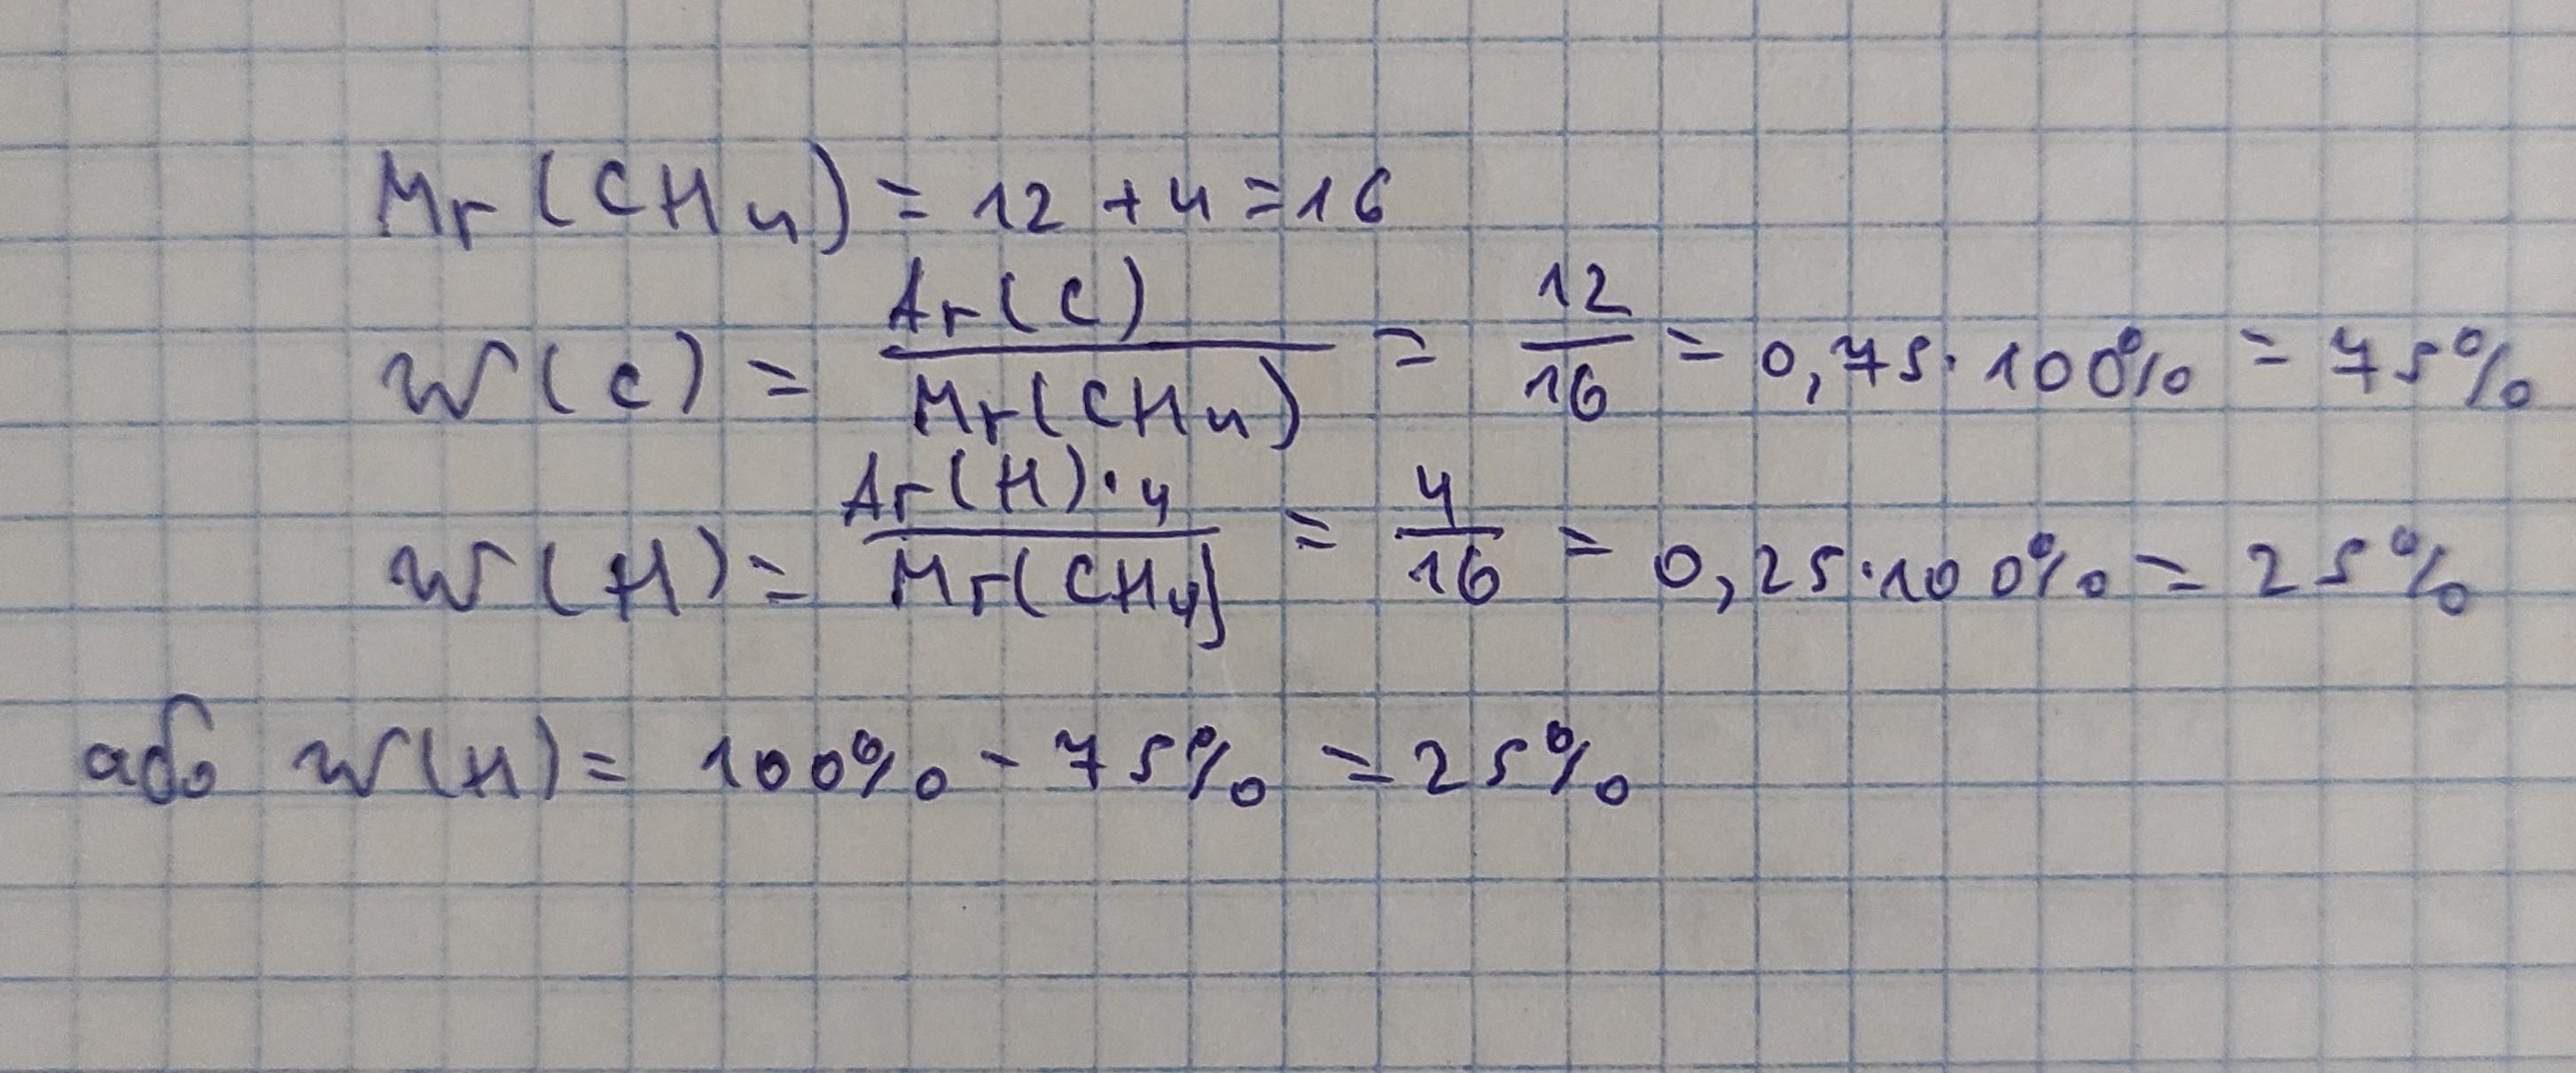 Mr(CH4) = 12 + 4 = 16
W(C) = Ar(C) / Mr(CH4) = 12/16 = 0,75 · 100% = 75%
W(H) = Ar(H) · 4 / Mr(CH4) = 4/16 = 0,25 · 100% = 25%
або W(H) = 100% - 75% = 25%